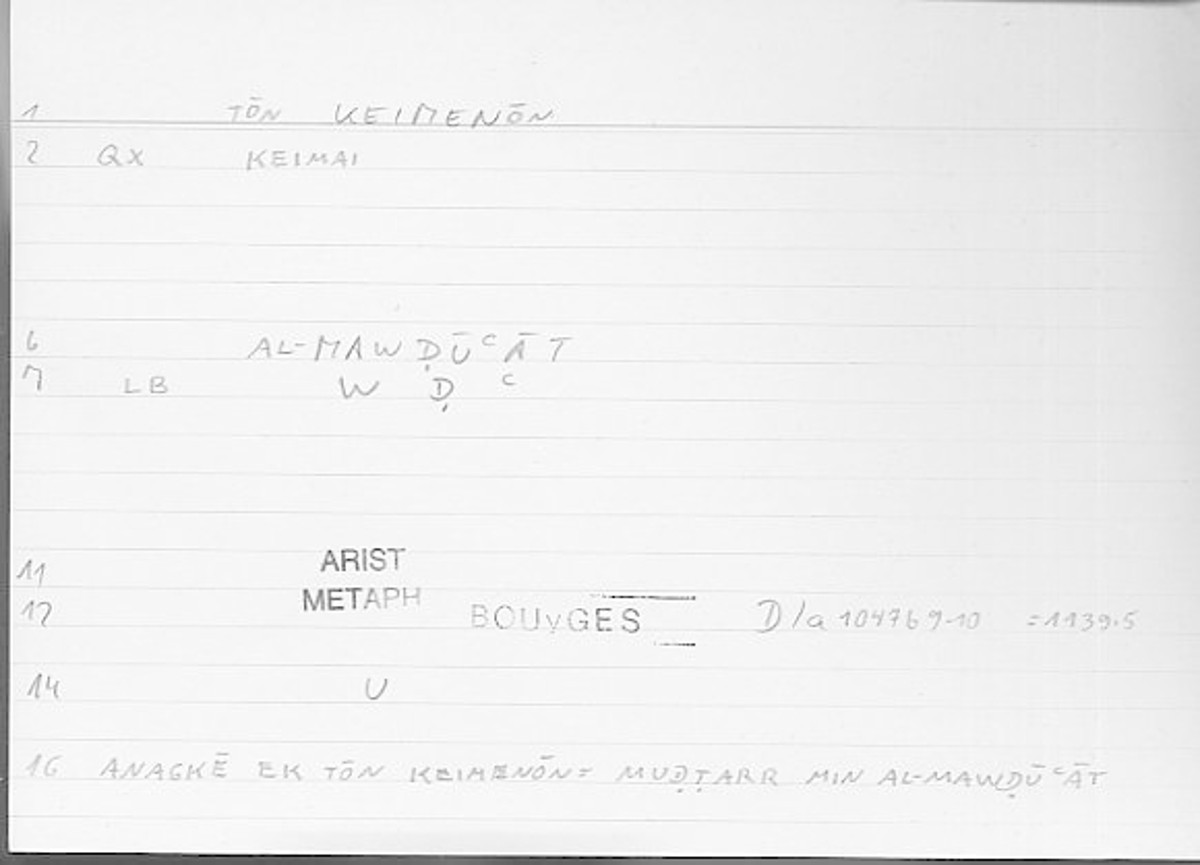 1 TŌN KEIMENŌN
2 QX KEIMAI
6 AL-MAWḌŪᶜĀT
7 LB W Ḍ ᶜ
11 ARIST
12 METAPH BOUyGES D/a 1047b 9-10 =1139.5
14 U
16 ANAGKĒ EK TŌN KEIMENŌN= MUḌṬARR MIN AL-MAWḌŪᶜĀT